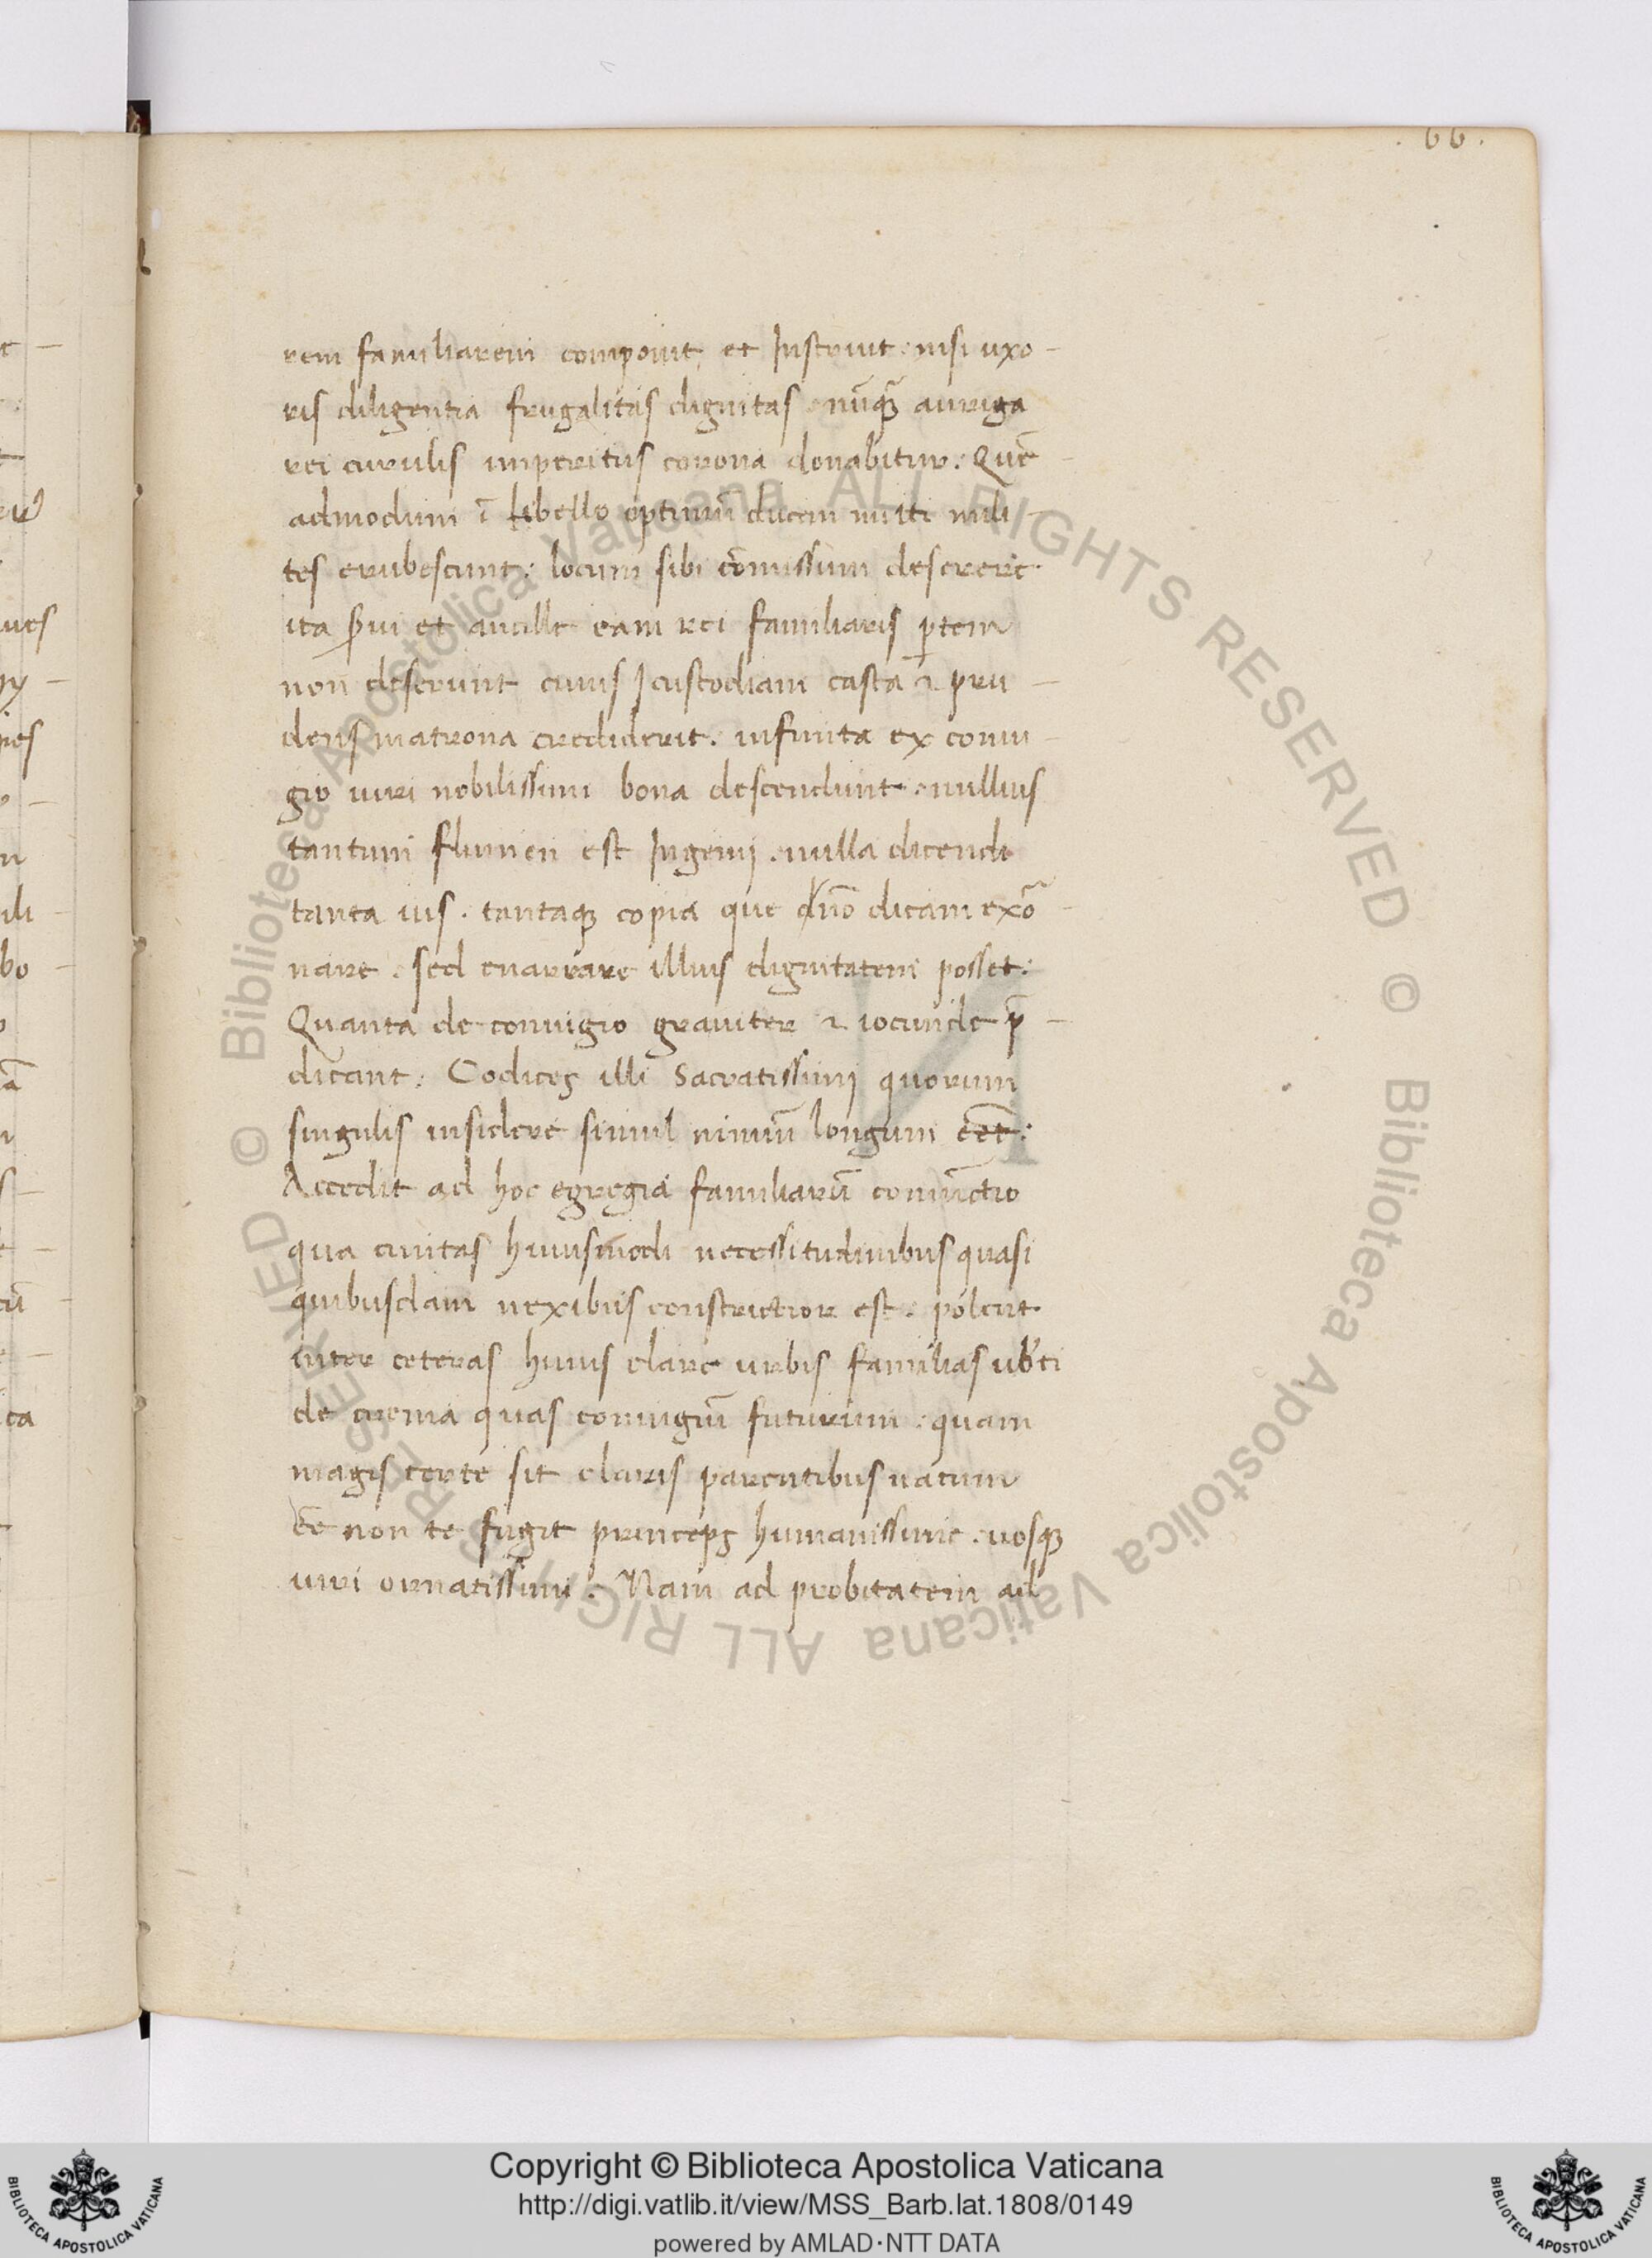 .66.
rem familiarem componit et Instruit nisi uxo-
ris diligentia frugalitas dignitas nūqꝫ auriga
rei curulis imperitus corona donabitur: Quē-
admodum ī libello optimū ducem multi mili-
tes erubescunt: locum sibi cōmissum deserere
ita s̄ui et ancille eam rei familiaris ꝑtem
non deserunt cuius I custodiam casta ⁊ pru-
dens matrona crediderit. infinita ex coniu-
gio uiri nobilissimi bona descendunt. nullius
tantum flumen est Ingenij. nulla dicendi
tanta uis. tantaqꝫ copia que dn̄o dicam exō-
nare. sed enarrare illius dignitatem posset:
Quanta de coniugio grauiter ⁊ iocunde p̄-
dicant: Codices illi Sacratissimj quorum
singulis insidere simul nimiū longum eēt:
Accedit ad hoc egregia familiarū coniūctio
qua ciuitas huiusmodi necessitudinibus quasi
quibusdam nexibus constrictior est. polent
inter ceteras huius clare urbis familias ub̄ti
de crema quas coniugiū futurum. quam
magis certe sit claris parentibus natum
eē non te fugit princeps humanissime. uosqꝫ
uiri ornatissimi. Nam ad probitatem ad
Copyright © Biblioteca Apostolica Vaticana
http://digi.vatlib.it/view/MSS_Barb.lat.1808/0149
powered by AMLAD·NTT DATA
BIBLIOTECA APOSTOLICA VATICANA
BIBLIOTECA APOSTOLICA VATICANA
© Biblioteca Apostolica Vaticana ALL RIGHTS RESERVED © Biblioteca Apostolica Vaticana ALL RIGHTS RESERVED